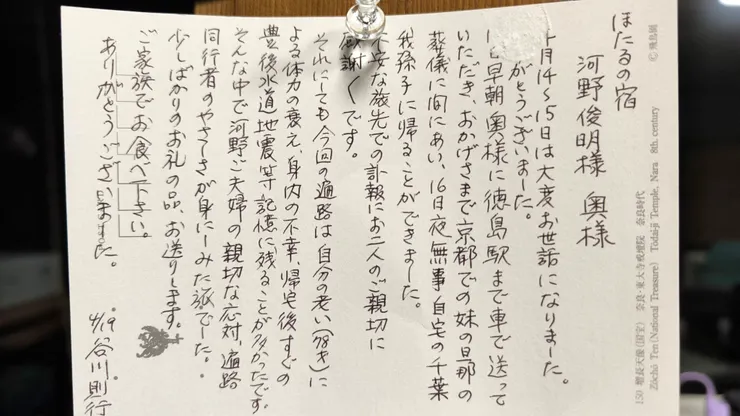 ほたるの宿
河野俊明様 奥様
月14〜15日は大変お世話になりました。
がとうございました。
早朝奥様に徳島駅まで車で送って
いただき、おかげさまで京都での妹の旦那の
葬儀に間にあい、16日夜、無事自宅の千葉
我孫子に帰ることができました。
不安な旅先での訃報にお二人のご親切に
感謝々です。
それにしても今回の遍路は自分の老い(71才)に
よる体力の衰え、身内の不幸、帰宅後すぐの
豊後水道地震等記憶に残ることが多かったです。
そんな中で河野ご夫婦の親切な応対、遍路
同行者のやさしさが身にしみた旅でした。
少しばかりのお礼の品、お送りします。
ご家族でお食べ下さい。
ありがとうございました。
4/19 谷川則行
150 増長天像(国宝) 奈良・東大寺戒壇院 奈良時代
Zōchō Ten (National Treasure) Tōdai-ji Temple, Nara 8th. century
© 飛鳥園